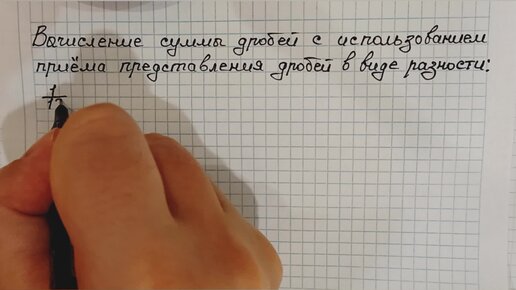 Вычисление суммы дробей с использованием
приёма представления дробей в виде разности:
1